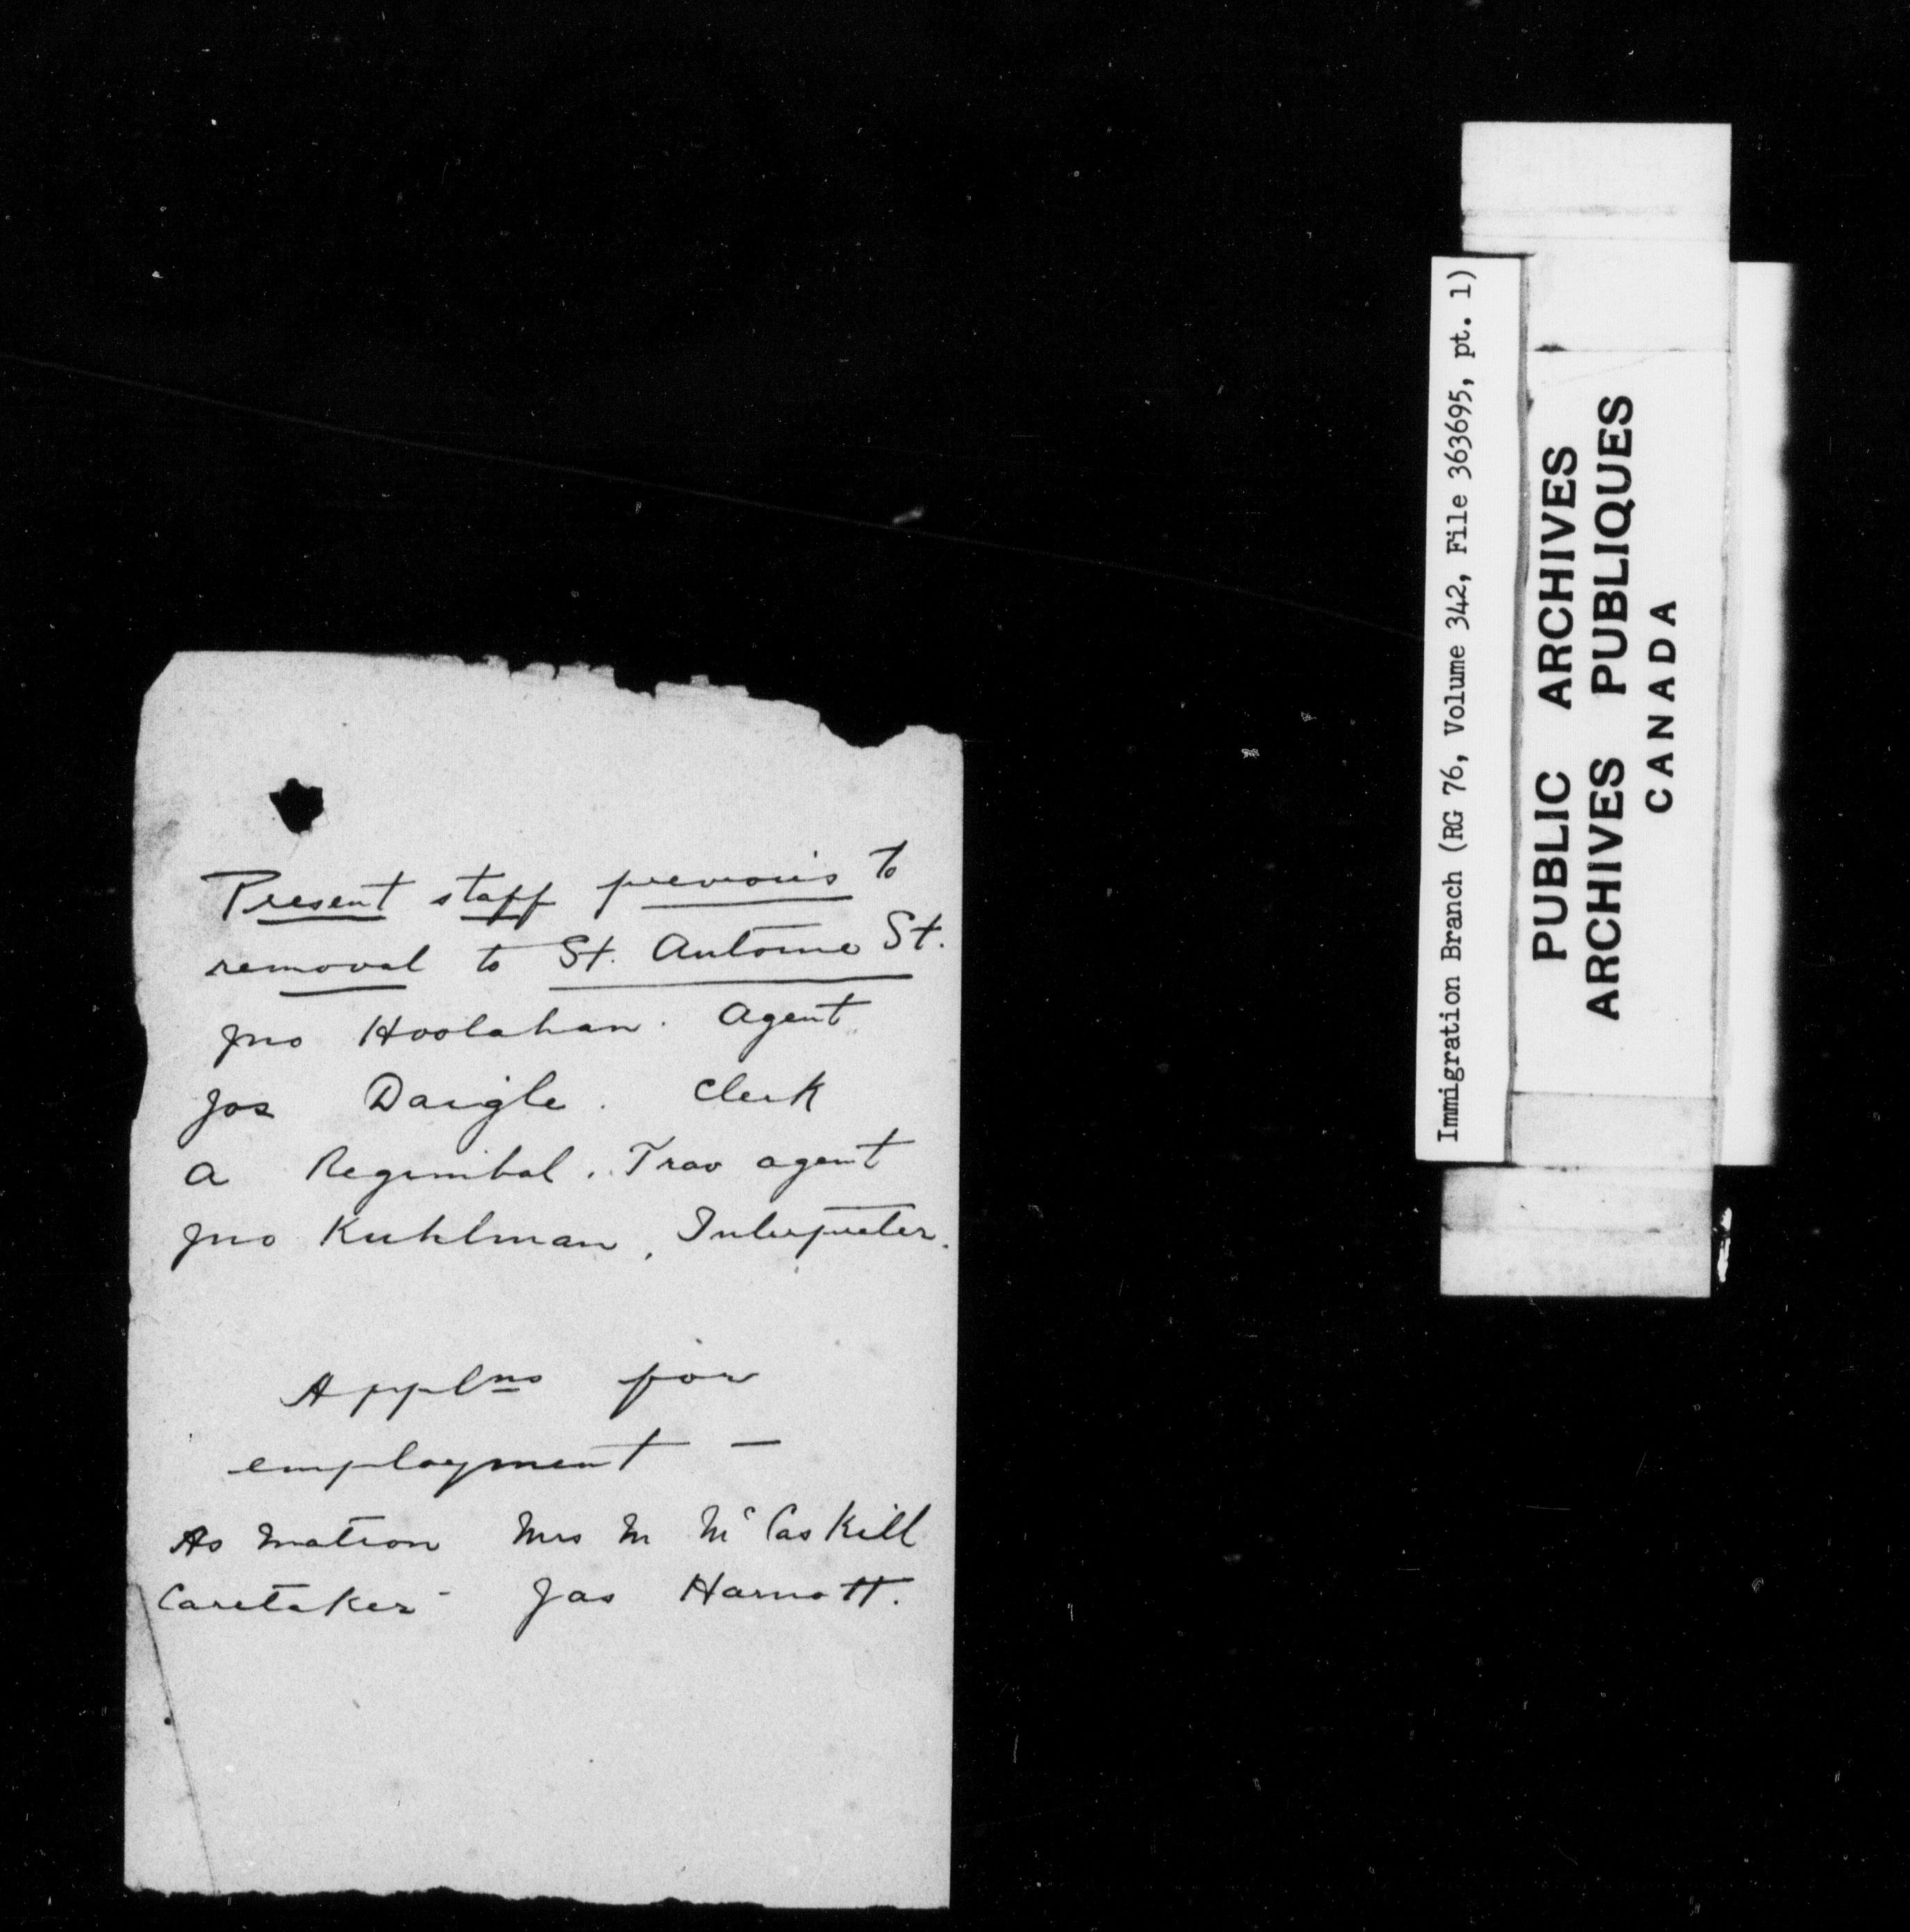 Present staff previous to
removal to St. Antoine St.
Jno Hoolahan. Agent
Jos Daigle. Clerk
A Regimbal. Trav agent
Jno Kuhlman, Interpreter.
Applns for
employment —
As Matron Mrs M McCaskill
Caretaker - Jas Harnott.
Immigration Branch (RG 76, Volume 342, File 363695, pt. 1)
PUBLIC ARCHIVES
ARCHIVES PUBLIQUES
CANADA